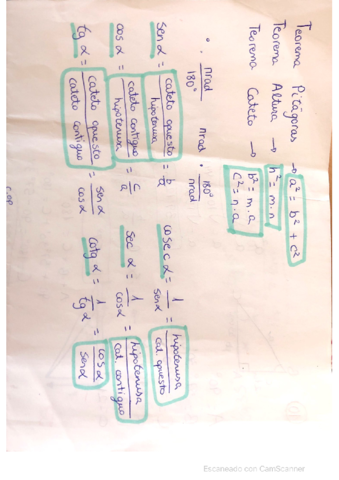 Teorema Pitágoras → a² = b² + c²
Teorema Altura → h² = m·n
Teorema Cateto → b² = m·a
c² = n·a
· πrad / 180°    πrad · 180° / πrad
sen α = cateto opuesto / hipotenusa = b / a    cosec α = 1 / sen α = hipotenusa / cat. opuesto
cos α = cateto contiguo / hipotenusa = c / a    sec α = 1 / cos α = hipotenusa / cat. contiguo
tg α = cateto opuesto / cateto contiguo = sen α / cos α    cotg α = 1 / tg α = cos α / sen α
Escaneado con CamScanner